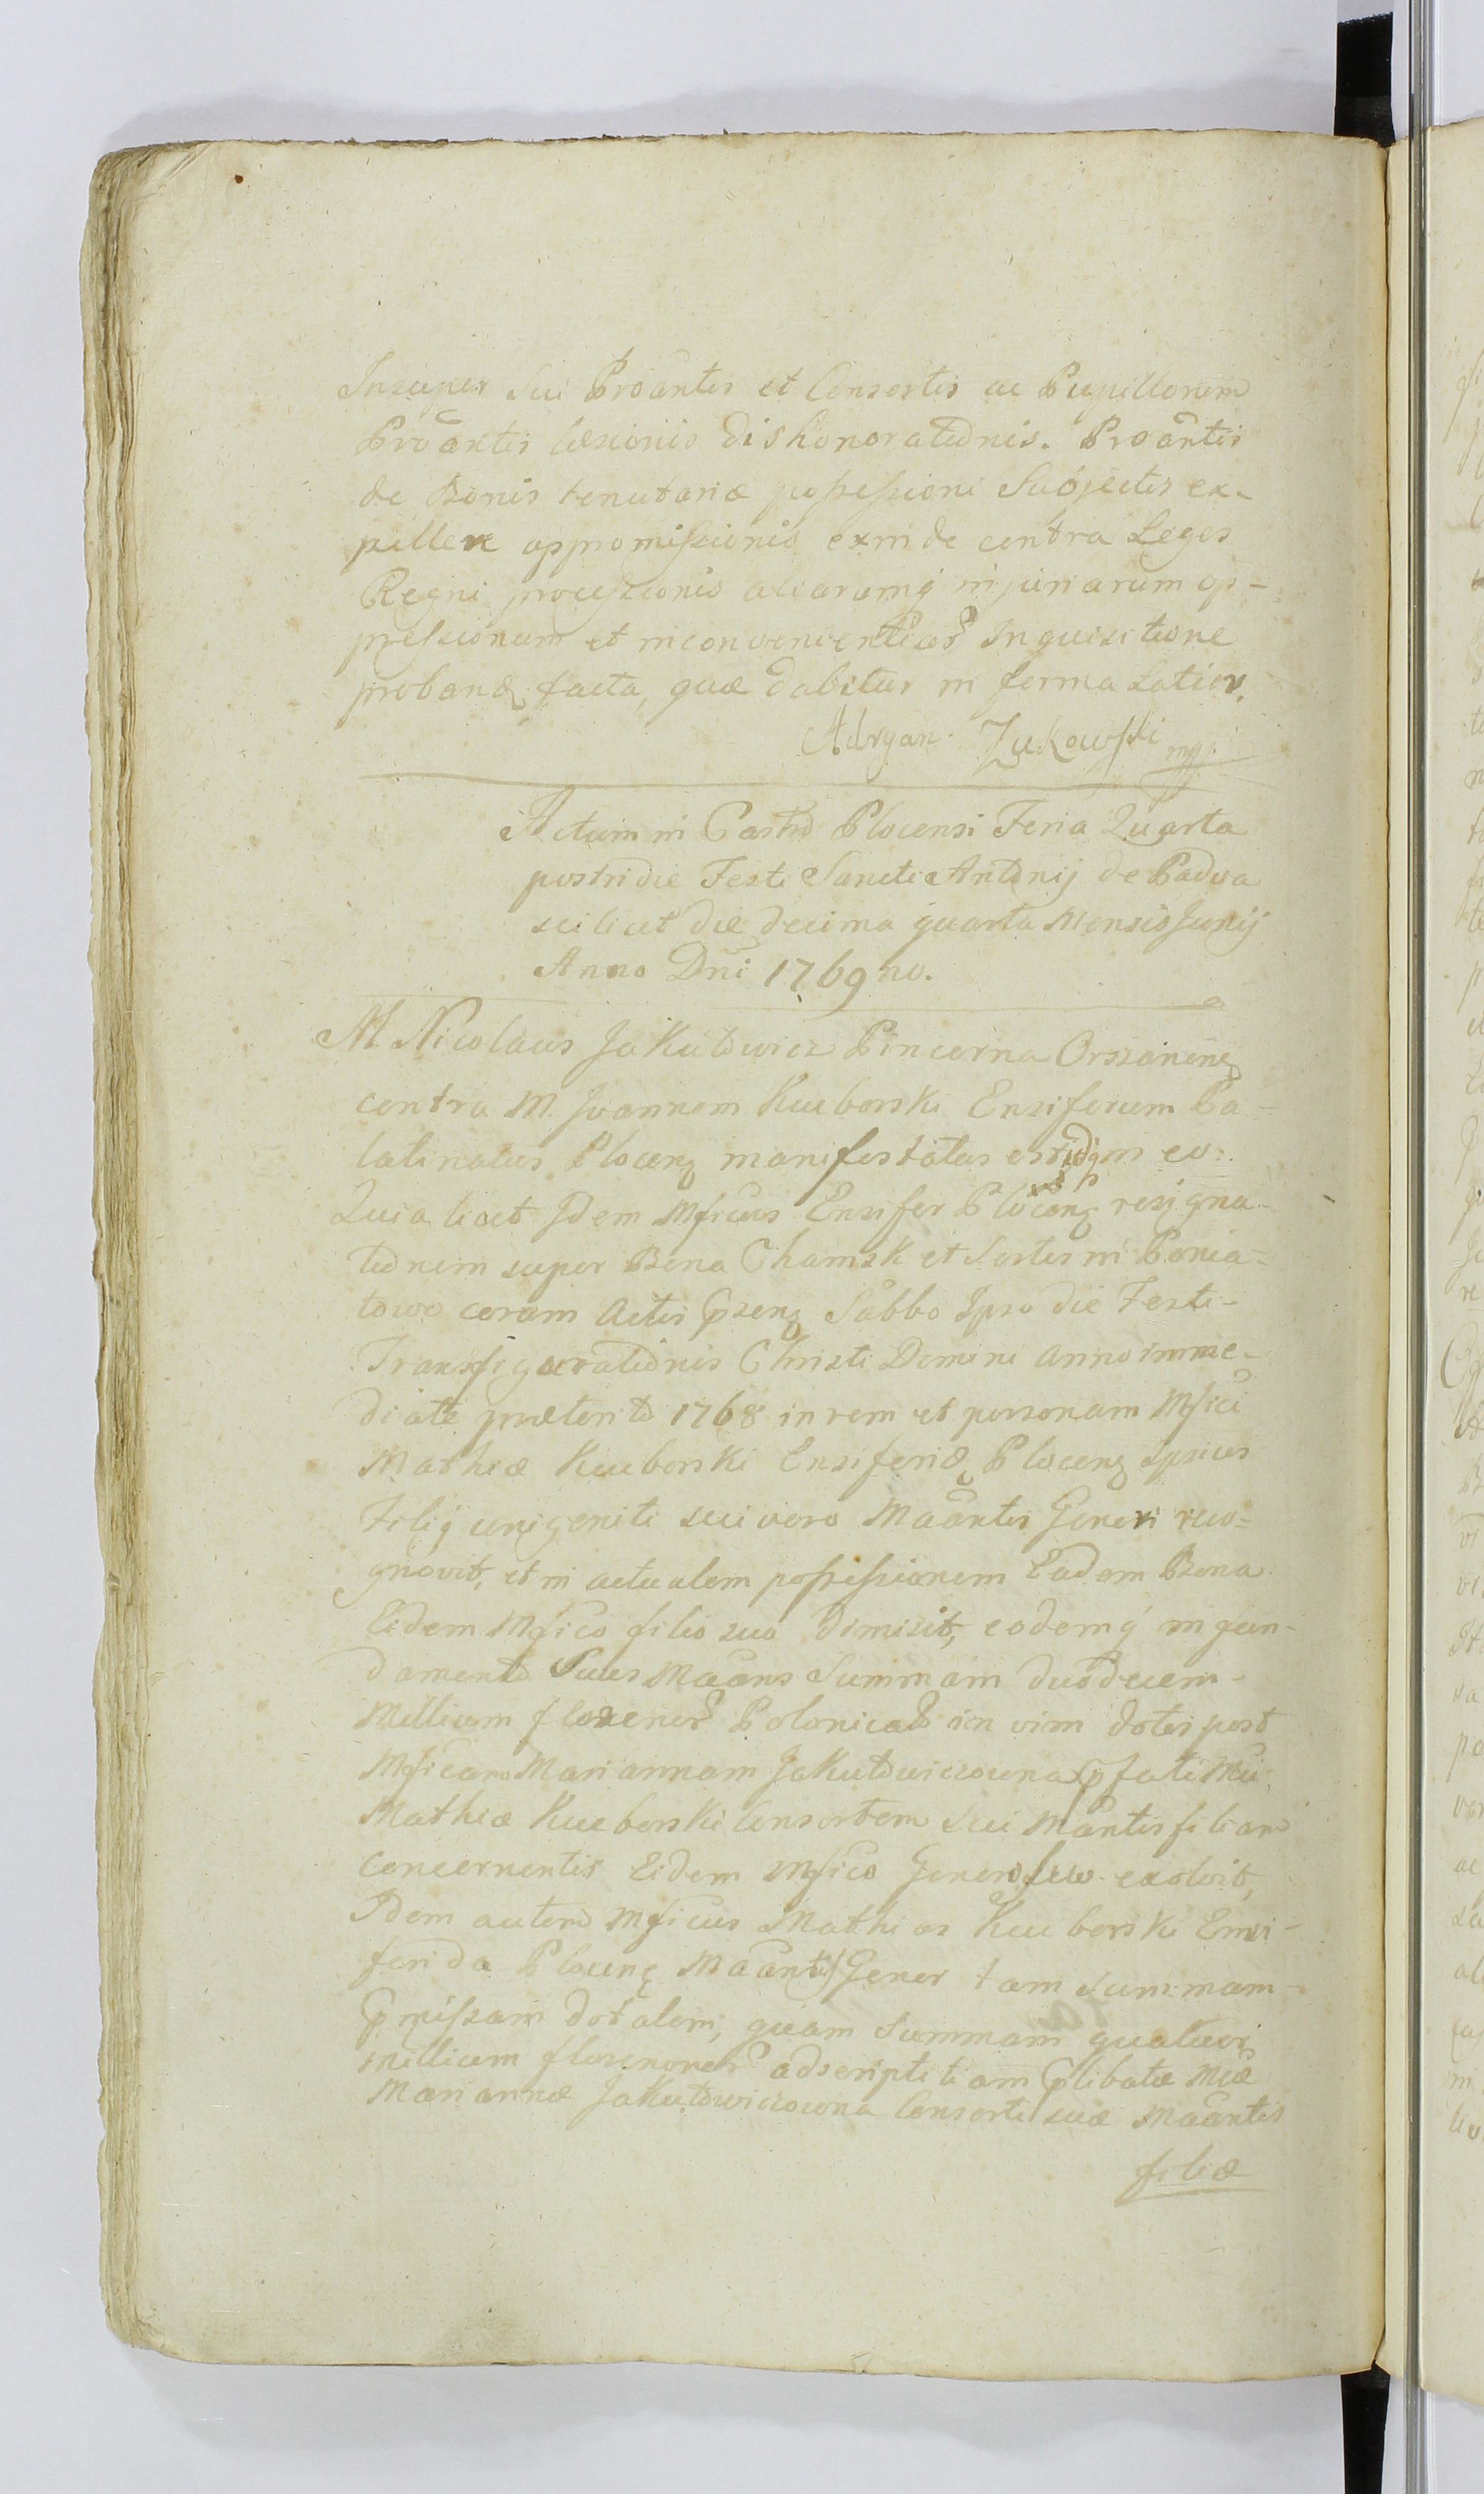 Insuper Sui Proãntis et Consortis ac Pupillorum
Proãntis læsionis dishonorationis. Proãntis
de Bonis tenutariæ possessioni Subjectis ex-
pellere appromissionis exinde contra Leges
Regni processionis aliarumq́ injuriarum op-
pressionum et inconvenientias Inquisitione
proband facta, quæ dabitur in forma Latior.
Adryan Zukowski mp
Actum in Castro Plocensi Feria Quarta
postridie Festi Sancti Antonij de Padua
scilicet die decima quarta Mensis Junij
Anno Dñi 1769no.
M. Nicolaus Jakutowicz Pincerna Orszanens
contra M. Joannem Kuuborski Ensiferum Pa-
latinatus Plocens manifestatus est idq in eo:
Quia licet Idem Mficus Ensifer Plocens resigna-
tionem super Bona Chamsk et Sortes in Ponia-
towo coram Actis Sabbo Ipso die Festi
Transfigurationis Christi Domini Anno imme-
diate præterito 1768 in rem et personam Mfici
Mathiæ Kuuborski Ensiferidæ Plocens Ipsius
Filij unigeniti sui vero Maãntis Generi reco-
gnovit, et in actualem possessionem Eadem Bona
Eidem Mfico filio suo dimisit, eodemq́ in fun-
damento Suus Maãns Summam duodecem
Millium florenor Polonical in vim dotis post
Mficam Mariannam Jakutowiczowna pfati Mci
Mathiæ Kuuborski Consortem Sui Maãntis filiam
concernentis Eidem Mfico Genero suo exolvit,
Idem autem Mficus Mathias Kuuborski Ensi-
ferida Plocens Maãntis Gener tam Summam
pmissam dotalem, quam Summam quatuor
millium florenorum adscriptitiam plibatæ Mcæ
Mariannæ Jakutowiczowna Consorti suæ Maãntis
filiæ